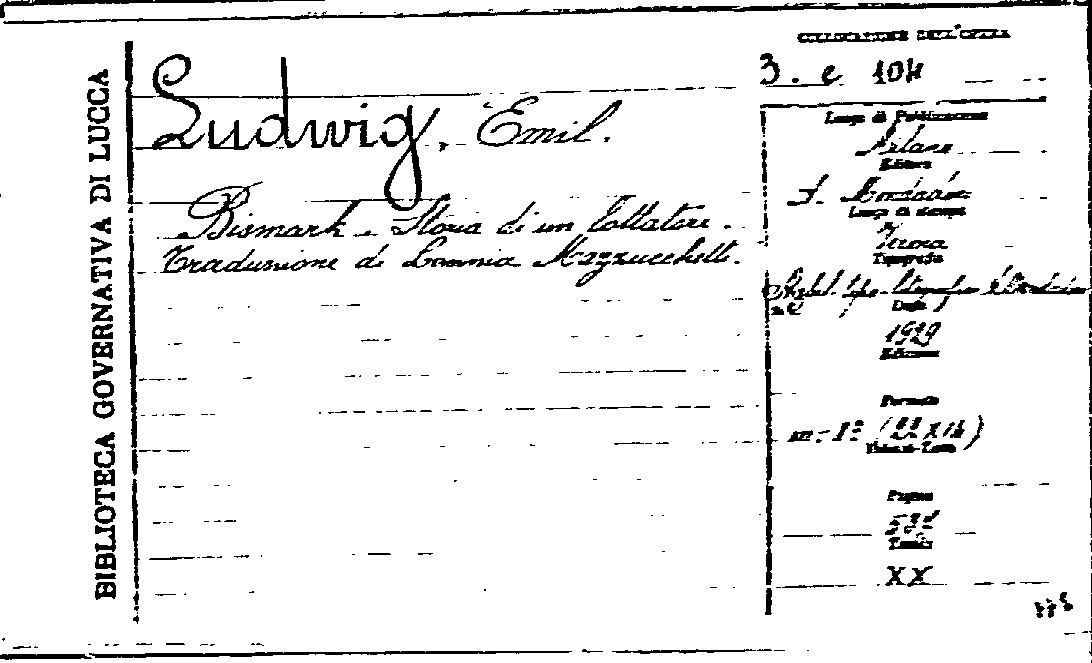 BIBLIOTECA GOVERNATIVA DI LUCCA
Ludwig, Emil.
Bismark - Storia di un lottatore.
Traduzione di Lavinia Mazzucchetti.
COLLOCAZIONE DELL'OPERA
3. e 104
Luogo di Pubblicazione
Milano
Editore
A. Mondadori
Luogo di stampa
Verona
Tipografia
Data
1929
Edizione
Formato
in-8º (22x14)
Volumi-Tomo
Pagine
Tavole
XX